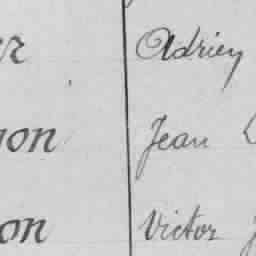 er Adrien
yon Jean
on Victor J